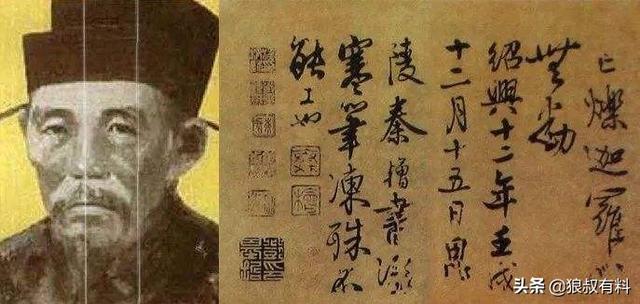 亡爍迦羅心
無動
紹興十二年壬戌
十二月十五日
陵秦檜書
寒筆凍殊不
能工也
头条 @狼叔有料